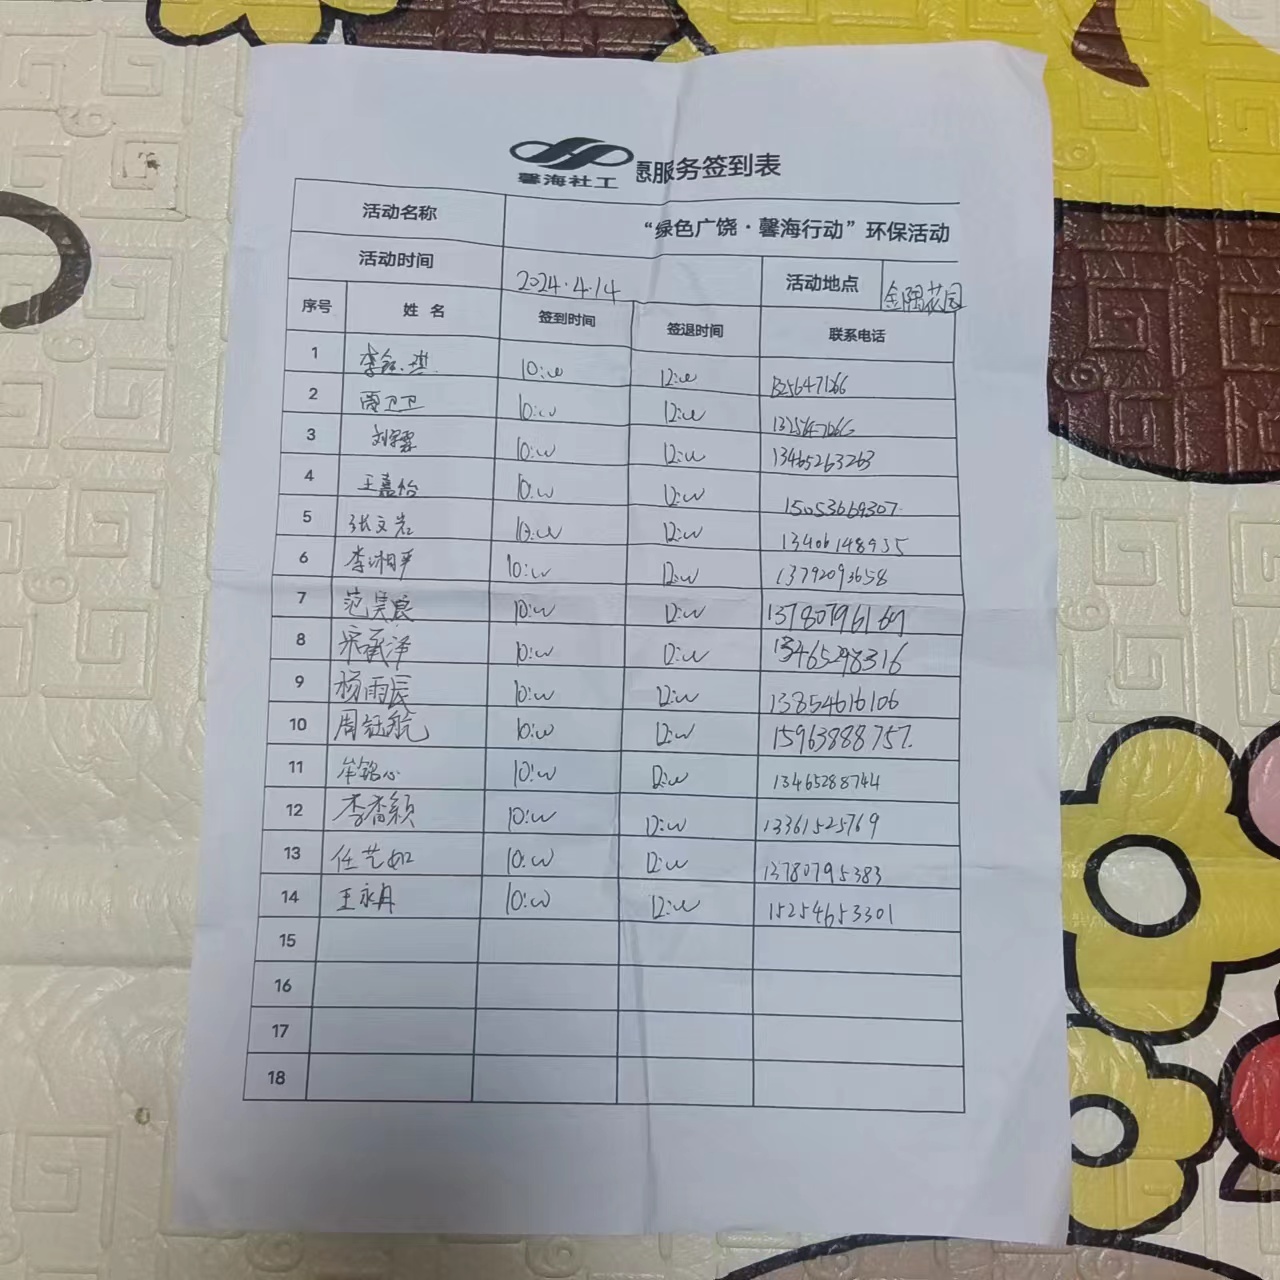 馨海社工
愿服务签到表
活动名称 “绿色广饶·馨海行动”环保活动
活动时间 2024.4.14 活动地点 金隅花园
序号 姓名 签到时间 签退时间 联系电话
1 10:00 12:00
2 贾卫卫 10:00 12:00
3 10:00 12:00 13465263263
4 王嘉怡 10:00 12:00 15053669307
5 张文岩 10:00 12:00 13406148935
6 李湘平 10:00 12:00 13792093658
7 范昊良 10:00 12:00
8 宋承泽 10:00 12:00 13465298316
9 杨雨辰 10:00 12:00 13854616106
10 周钰航 10:00 12:00 15963888757.
11 牟铭心 10:00 12:00 13465288744
12 李香颖 10:00 12:00 13361525769
13 任艺如 10:00 12:00 13780795383
14 王永丹 10:00 12:00 15254653301
15
16
17
18